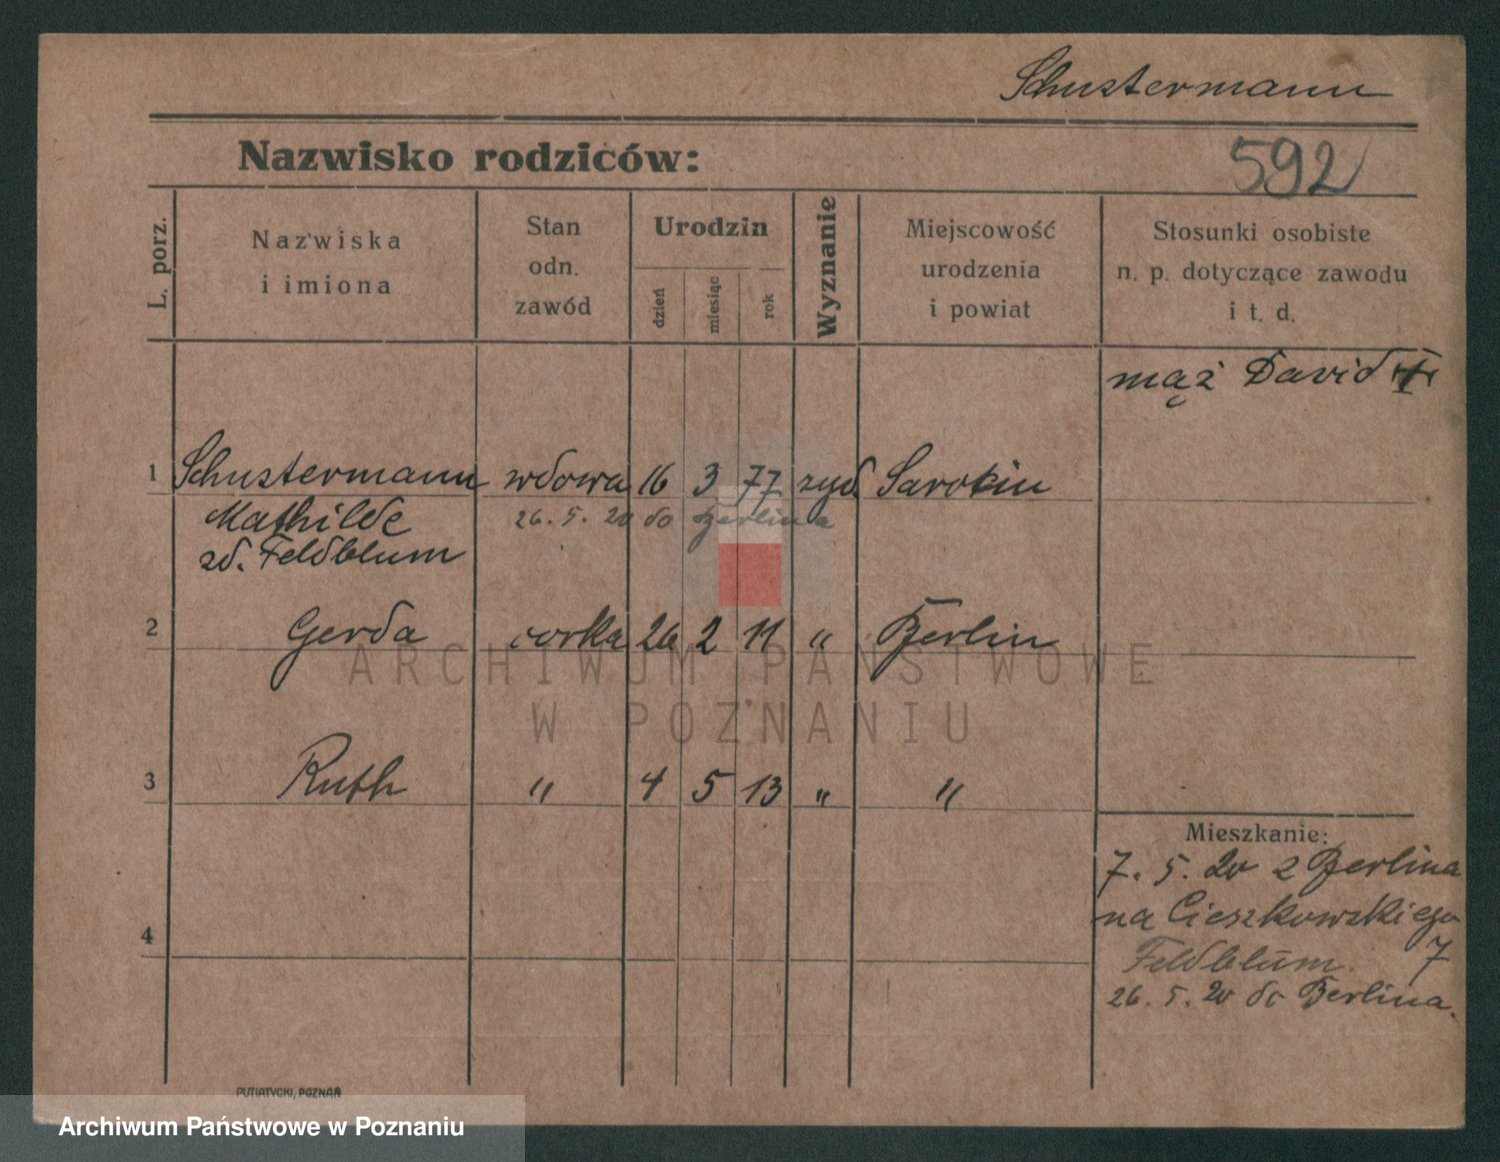 Schustermann
Nazwisko rodziców:
592
L. porz.
Nazwiska
i imiona
Stan
odn.
zawód
Urodzin
dzień
miesiąc
rok
Wyznanie
Miejscowość
urodzenia
i powiat
Stosunki osobiste
n. p. dotyczące zawodu
i t. d.
mąż David
1 Schustermann wdowa 16 3 77 żyd.
Mathilde 26. 5. 20 do Berlina
zd. Feldblum
2 Gerda córka 26 2 11 " Berlin
ARCHIWUM PAŃSTWOWE
W POZNANIU
3 Ruth " 4 5 13 " "
Mieszkanie:
7. 5. 20 z Berlina
na Cieszkowskiego
4
Feldblum. 7
26. 5. 20 do Berlina.
PUTIATYCKI, POZNAŃ
Archiwum Państwowe w Poznaniu